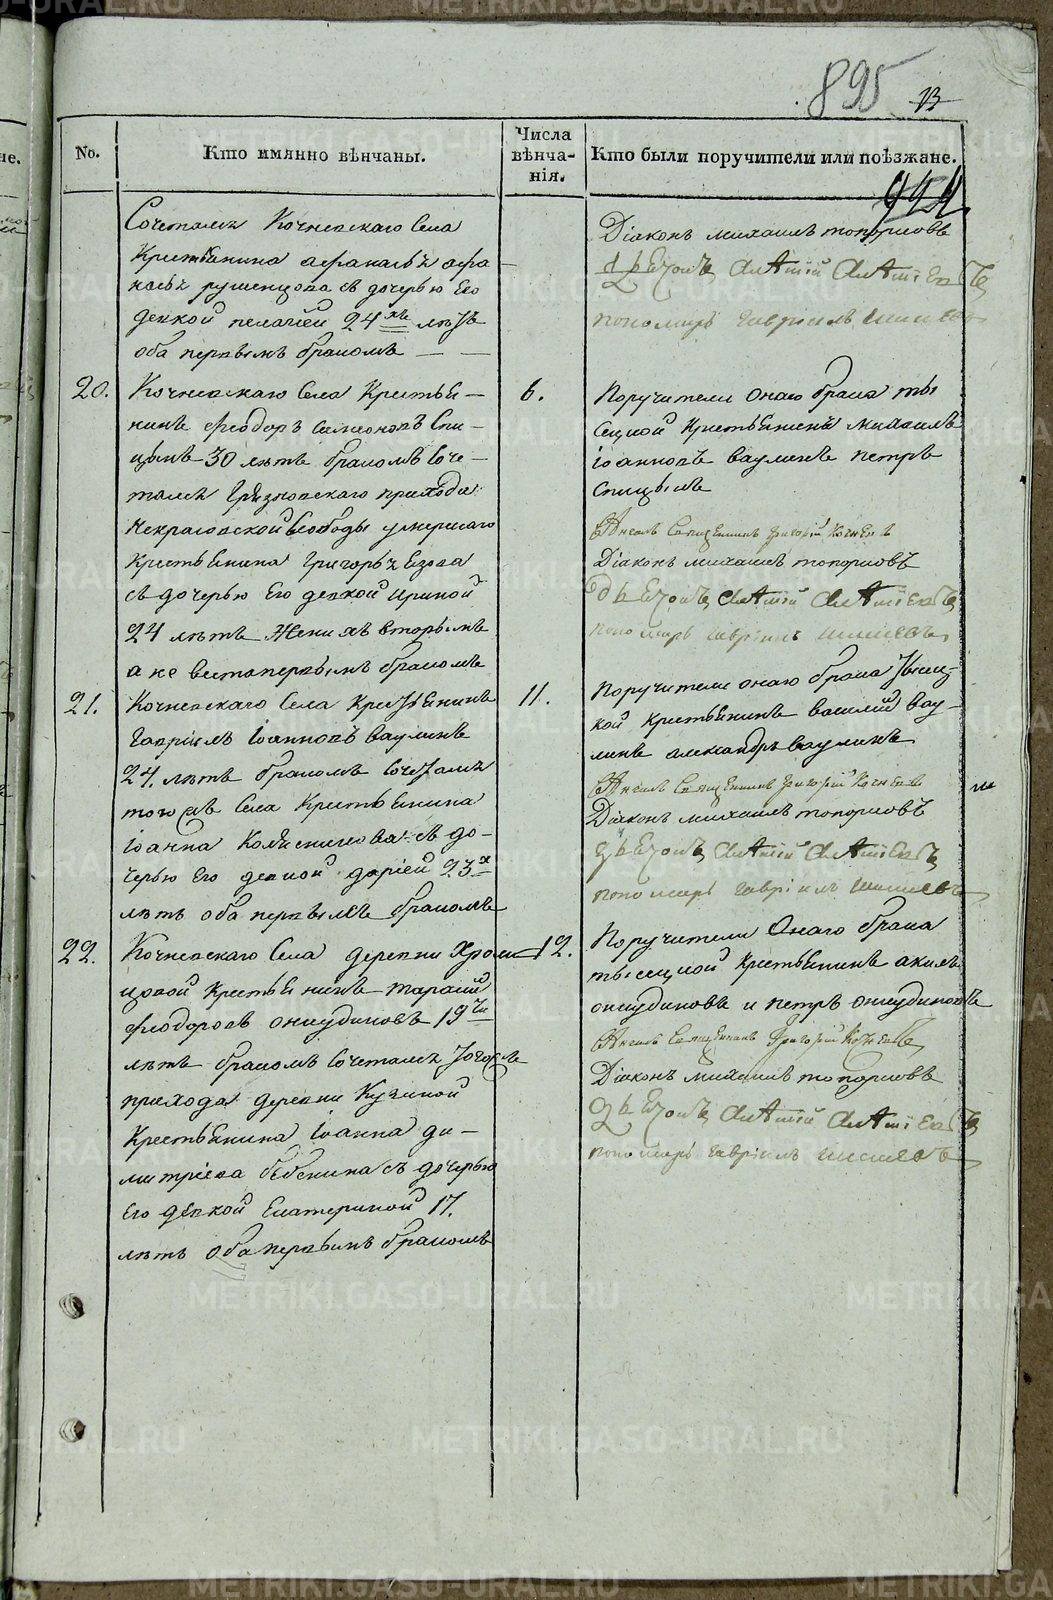 895
13
No.
Кто имянно вѣнчаны.
Числа вѣнча-
нія.
Кто были поручители или поѣзжане.
Сочетался Кочневскаго Села
Крестьянина афанасья афа
насья с дочерью Его
девкой пелагіей 24хъ лѣтъ
оба первымъ бракомъ
Діаконъ михаилъ топорковъ
пономарь гавріилъ
20.
Кочневскаго Села Крестья-
нинъ феодоръ Симеоновъ Спи-
цынъ 30 лѣтъ бракомъ Соче-
тался Грязновскаго прихода
Некрасовской Слободы умершаго
Крестьянина Григорья Езова
съ дочерью Его девкой Ириной
24 лѣтъ Жених вторымъ
а невеста первымъ бракомъ
6.
Поручители Онаго брака ты
сецкой Крестьянинъ михаилъ
іоанновъ ваулинъ петръ
Спицынъ
Священникъ Григорій Кочневъ
Діаконъ михаилъ топорковъ
пономарь гавріилъ
21.
Кочневскаго Села Крестьянинъ
Гавріилъ Іоанновъ ваулинъ
24. лѣтъ бракомъ Сочетался
тогожъ Села Крестьянина
іоанна съ до-
черью Его девкой даріей 23х
лѣтъ оба первымъ бракомъ
11.
Поручители онаго брака тысец-
кой крестьянинъ василій вау-
линъ александръ ваулинъ
Священникъ Григорій Кочневъ
Діаконъ михаилъ топорковъ
пономарь гавріилъ
22.
Кочневскаго Села деревни
Крестьянинъ тарасій
феодоровъ онкудиновъ 19ти
лѣтъ бракомъ Сочетался тогожъ
прихода деревни
Крестьянина іоанна ди-
митріева бебенина съ дочерью
Его девкой Екатериной 17.
лѣтъ оба первымъ бракомъ
12.
Поручители Онаго брака
тысецкой Крестьянинъ акимъ
онкудиновъ и петръ онкудиновъ
Священникъ Григорій Кочневъ
Діаконъ михаилъ топорковъ
пономарь гавріилъ
METRIKI.GASO-URAL.RU